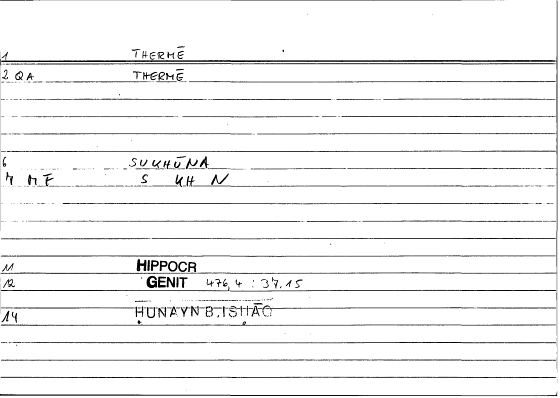 1 THERMĒ
2 QA THERMĒ
6 SUKHŪNA
7 MF S KH N
11 HIPPOCR
12 GENIT 476,4 : 37.15
14 ḤUNAYN B. ISḤĀQ